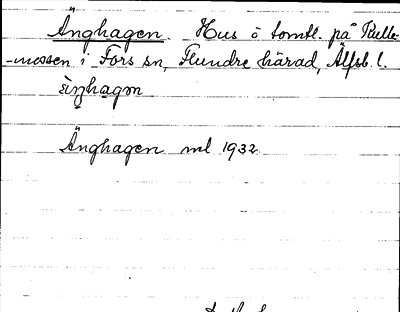 Änghagen. Hus å tomtl. på Bulle-
-mossen i Fors sn, Flundre härad, Älfsb. l.
Änghagen ml 1932